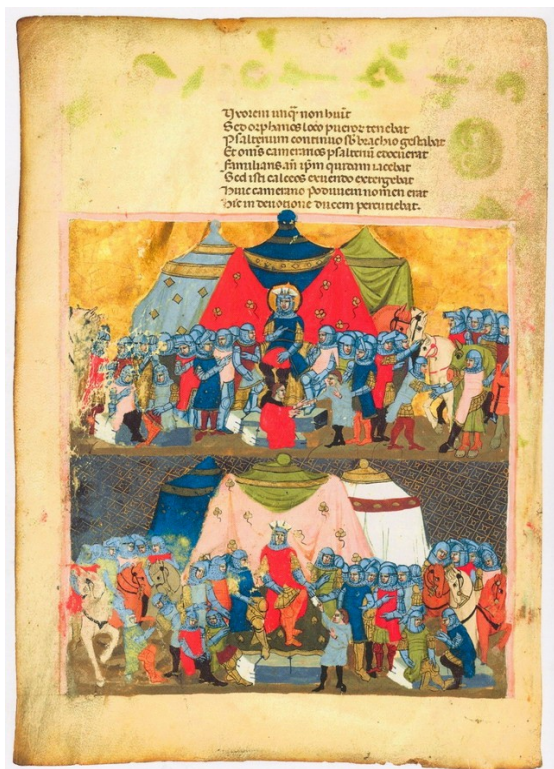 Uxorem unq̄ non huit
Sed orphanos loco pueror tenebat
Psalterium continuo sb brachio gestabat
Et om̄s cameranos psalteriū edocuerat
familians aū ip̄m quidam iacebat
Sed isti calceos exuendo extergebat
Huic camerano podiuuem nomen erat
Hic in deuotione ducem percutiebat.